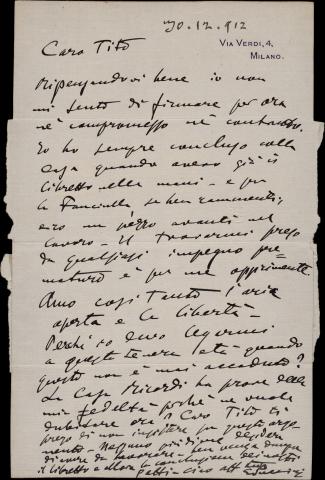 30.12.912
VIA VERDI, 4,
MILANO.
Caro Tito
Ripensandovi bene io non
mi sento di firmare per ora
nè compromesso nè contratto.
Io ho sempre concluso colla
Casa quando avevo già il
libretto nelle mani - e per
la Fanciulla se ben rammenti,
ero un pezzo avanti nel
lavoro - Il trovarmi preso
da qualsiasi impegno pre=
maturo è per me opprimente.
Amo capitanto l'aria
aperta e la libertà -
Perchè devo legarmi
a questa età quando
questo non è mai accaduto?
La Casa Ricordi ha prove della
mia fedeltà poichè ne vuole
dubitare ora? Caro Tito ti
prego di non insistere su questo argo
mento - Nessuno più di me desidera
di lavorare -
il libretto e allora la concluderemo
ciao aff
Puccini